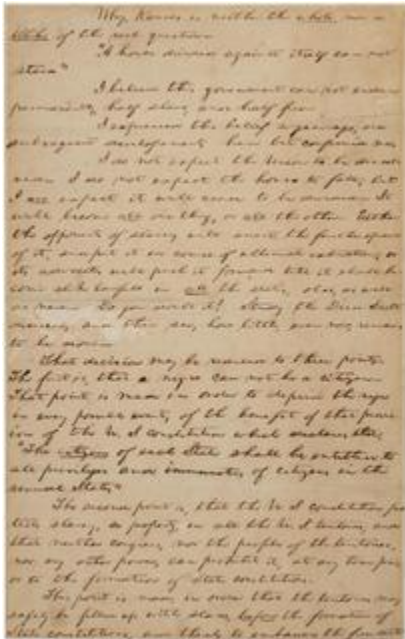 Why, Kansas is neither the whole, nor a
tithe of the real question.
"A house divided against itself can not
stand"
I believe this government can not endure
permanently, half slave, and half free.
I expressed this belief a year ago; and
subsequent developments have but confirmed me.
I do not expect the Union to be dissolved
I do not expect the house to fall; but
I do expect it will cease to be divided. It
will become all one thing, or all the other. Either
the opponents of slavery will arrest the further spread
of it, and put it in course of ultimate extinction; or
its advocates will push it forward till it shall be
come alike lawful in all the states, old, as well
as new. Do you doubt it? Study the Dred Scott
decision, and then see, how little, even now, remains
to be done.
That decision may be reduced to three points.
The first is, that a negro can not be a citizen.
That point is made in order to deprive the negro
in every possible event, of the benefit of that provis
ion of the U. S constitution which declares that;
"The citizens of each State shall be entitled to
all privileges and immunities of citizens in the
several States."
The second point is, that the U. S constitution pro
tects slavery, as property, in all the U. S territories, and
that neither congress, nor the people of the territories,
nor any other power, can prohibit it, at any time prior
to the formation of State constitutions.
This point is made, in order that the territories may
safely be filled up with slaves, before the formation of
State constitutions, and thereby to embarrass the free state